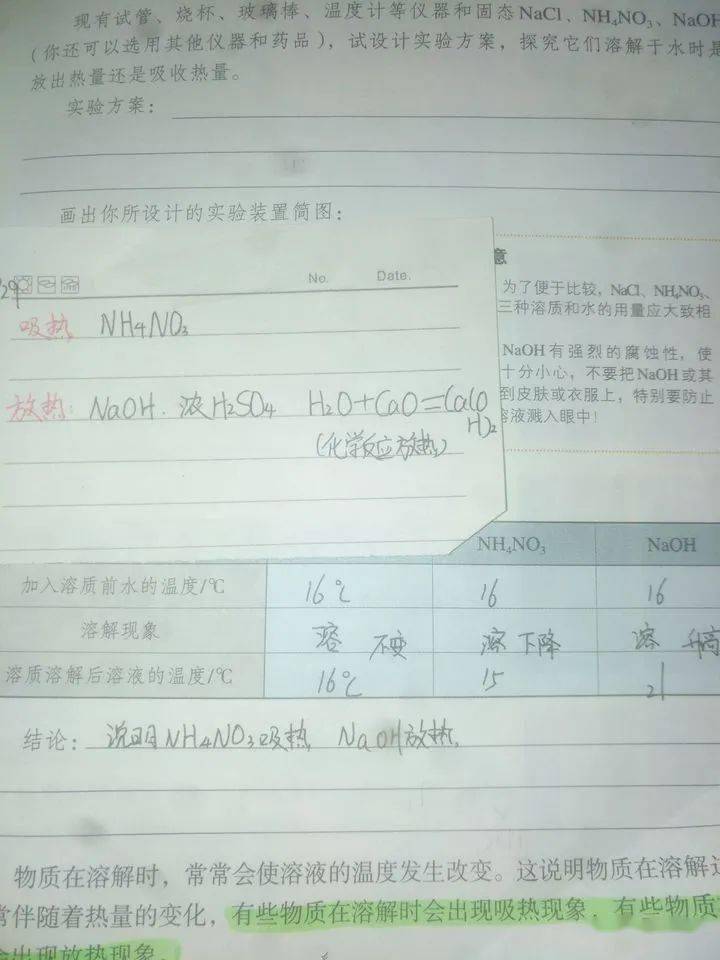 现有试管、烧杯、玻璃棒、温度计等仪器和固态NaCl、NH₄NO₃、NaOH
(你还可以选用其他仪器和药品)，试设计实验方案，探究它们溶解于水时是
放出热量还是吸收热量。
实验方案：
画出你所设计的实验装置简图：
No. Date.
29
吸热 NH₄NO₃
放热： NaOH. 浓H₂SO₄ H₂O+CaO=Ca(O
H)₂
(化学反应放热)
意
为了便于比较，NaCl、NH₄NO₃、
三种溶质和水的用量应大致相
NaOH有强烈的腐蚀性，使
十分小心，不要把NaOH或其
到皮肤或衣服上，特别要防止
溶液溅入眼中！
NH₄NO₃ NaOH
加入溶质前水的温度/℃ 16℃ 16 16
溶解现象 溶 不变 溶 下降 溶 升高
溶质溶解后溶液的温度/℃ 16℃ 15 21
结论： 说明NH₄NO₃吸热 NaOH放热.
物质在溶解时，常常会使溶液的温度发生改变。这说明物质在溶解过
常伴随着热量的变化，有些物质在溶解时会出现吸热现象．有些物质
会出现放热现象．